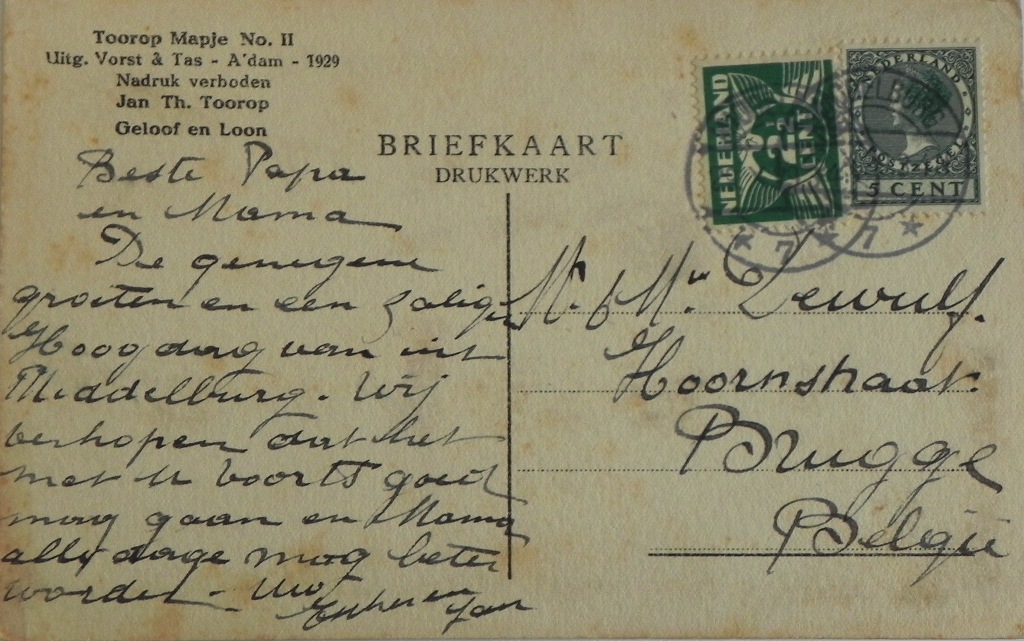 Toorop Mapje No. II
Uitg. Vorst & Tas - A'dam - 1929
Nadruk verboden
Jan Th. Toorop
Geloof en Loon
BRIEFKAART
DRUKWERK
NEDERLAND
2½
CENT
NEDERLAND
POSTZEGEL
5 CENT
7
7
Beste Papa
en Mama
De genegene
groeten en een zalige
Hoogdag van uit
Middelburg. Wij
verhopen dat het
met U voorts goed
mag gaan en Mama
alle dage mag beter
worden. Uw
en Jan
Mr. & Mme Dewulf.
Hoornstraat.
Brugge
België